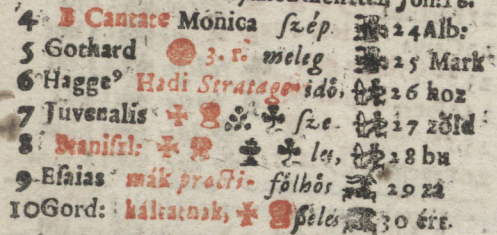 4 B Cantate Monica szép 24 Alb:
5 Gothard 3. r. meleg 25 Mark
6 Hagge⁹ Hadi Stratage- idő, 26 hoz
7 Juvenalis sze- 27 zöld
8 Stanisl: les, 28 bu
9 Esaias mák practi- fölhős 29 zá
10 Gord: káltatnak, 30 ért.